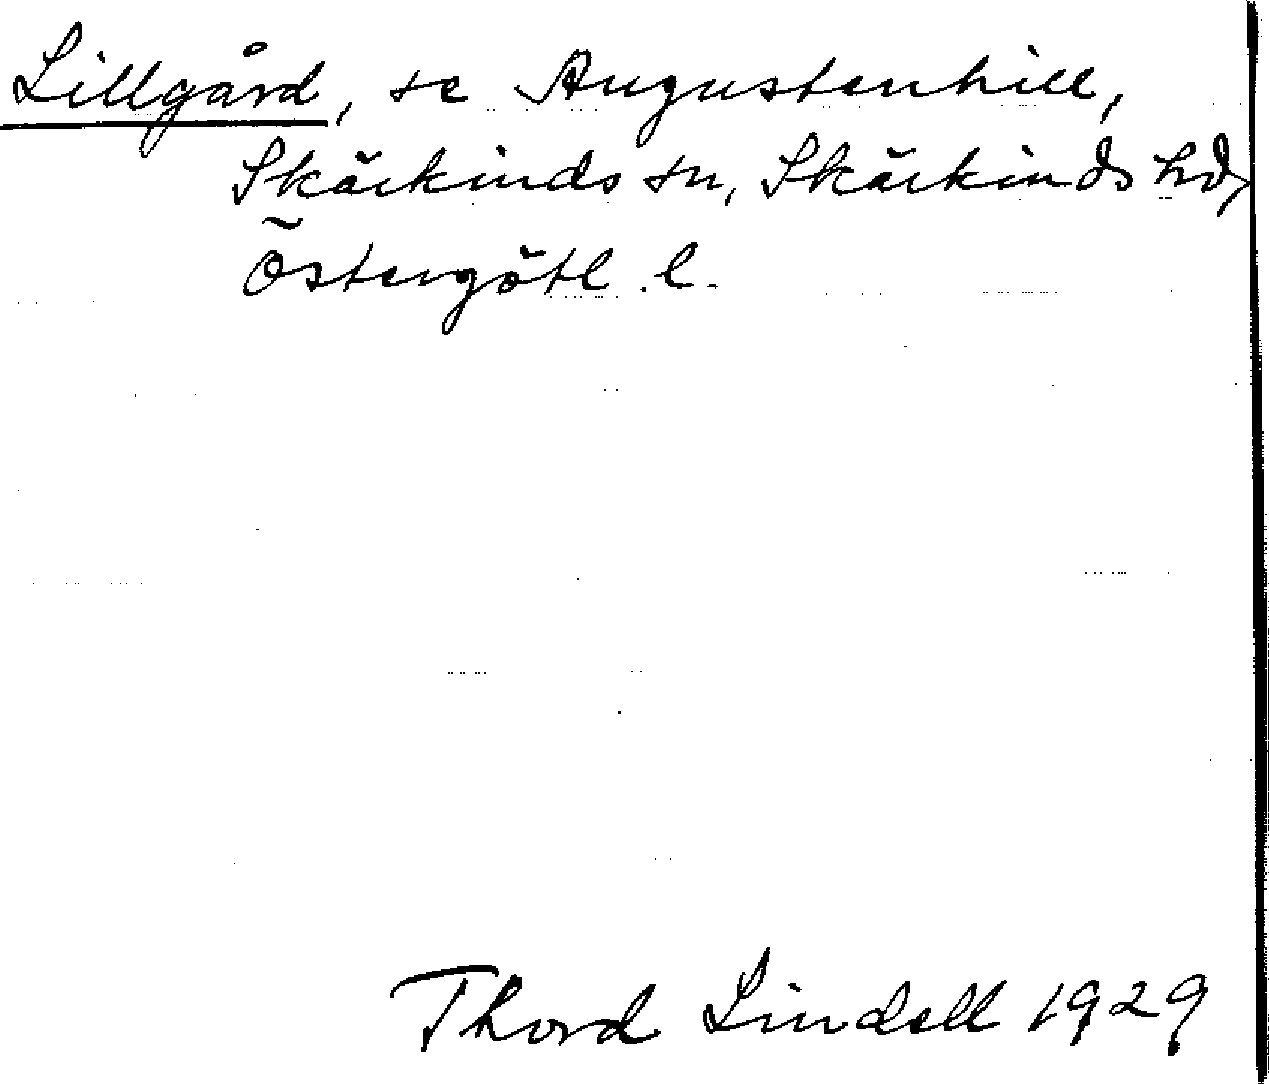 Lillgård, se Augustenhill,
Skärkinds sn, Skärkinds hd,
Östergötl. l.
Thord Lindell 1929